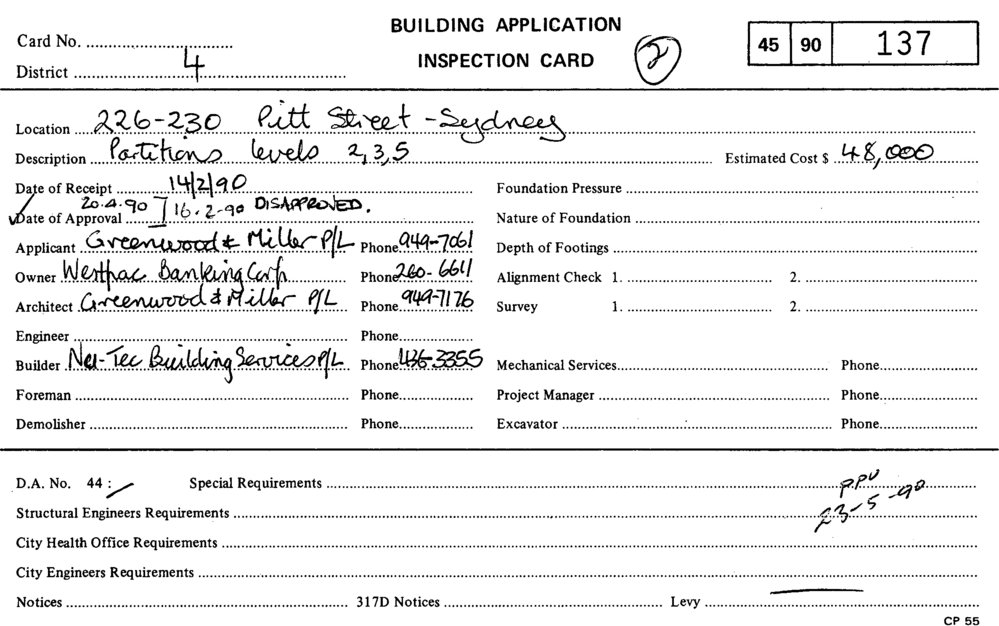 BUILDING APPLICATION
INSPECTION CARD
Card No.
District 4
2
45 90 137
Location 226-230 Pitt Street - Sydney
Description Partitions levels 2,3,5 Estimated Cost $ 48,000
Date of Receipt 14/2/90 Foundation Pressure
Date of Approval 20.4.90 16.2-90 DISAPPROVED. Nature of Foundation
Applicant Greenwood & Miller P/L Phone 949-7061 Depth of Footings
Owner Westpac Banking Corp Phone 260-6611 Alignment Check 1. 2.
Architect Greenwood & Miller P/L Phone 949-7176 Survey 1. 2.
Engineer Phone
Builder Building Services P/L Phone 436-3355 Mechanical Services Phone
Foreman Phone Project Manager Phone
Demolisher Phone Excavator Phone
D.A. No. 44 : Special Requirements PPU
Structural Engineers Requirements 23-5-90
City Health Office Requirements
City Engineers Requirements
Notices 317D Notices Levy
CP 55